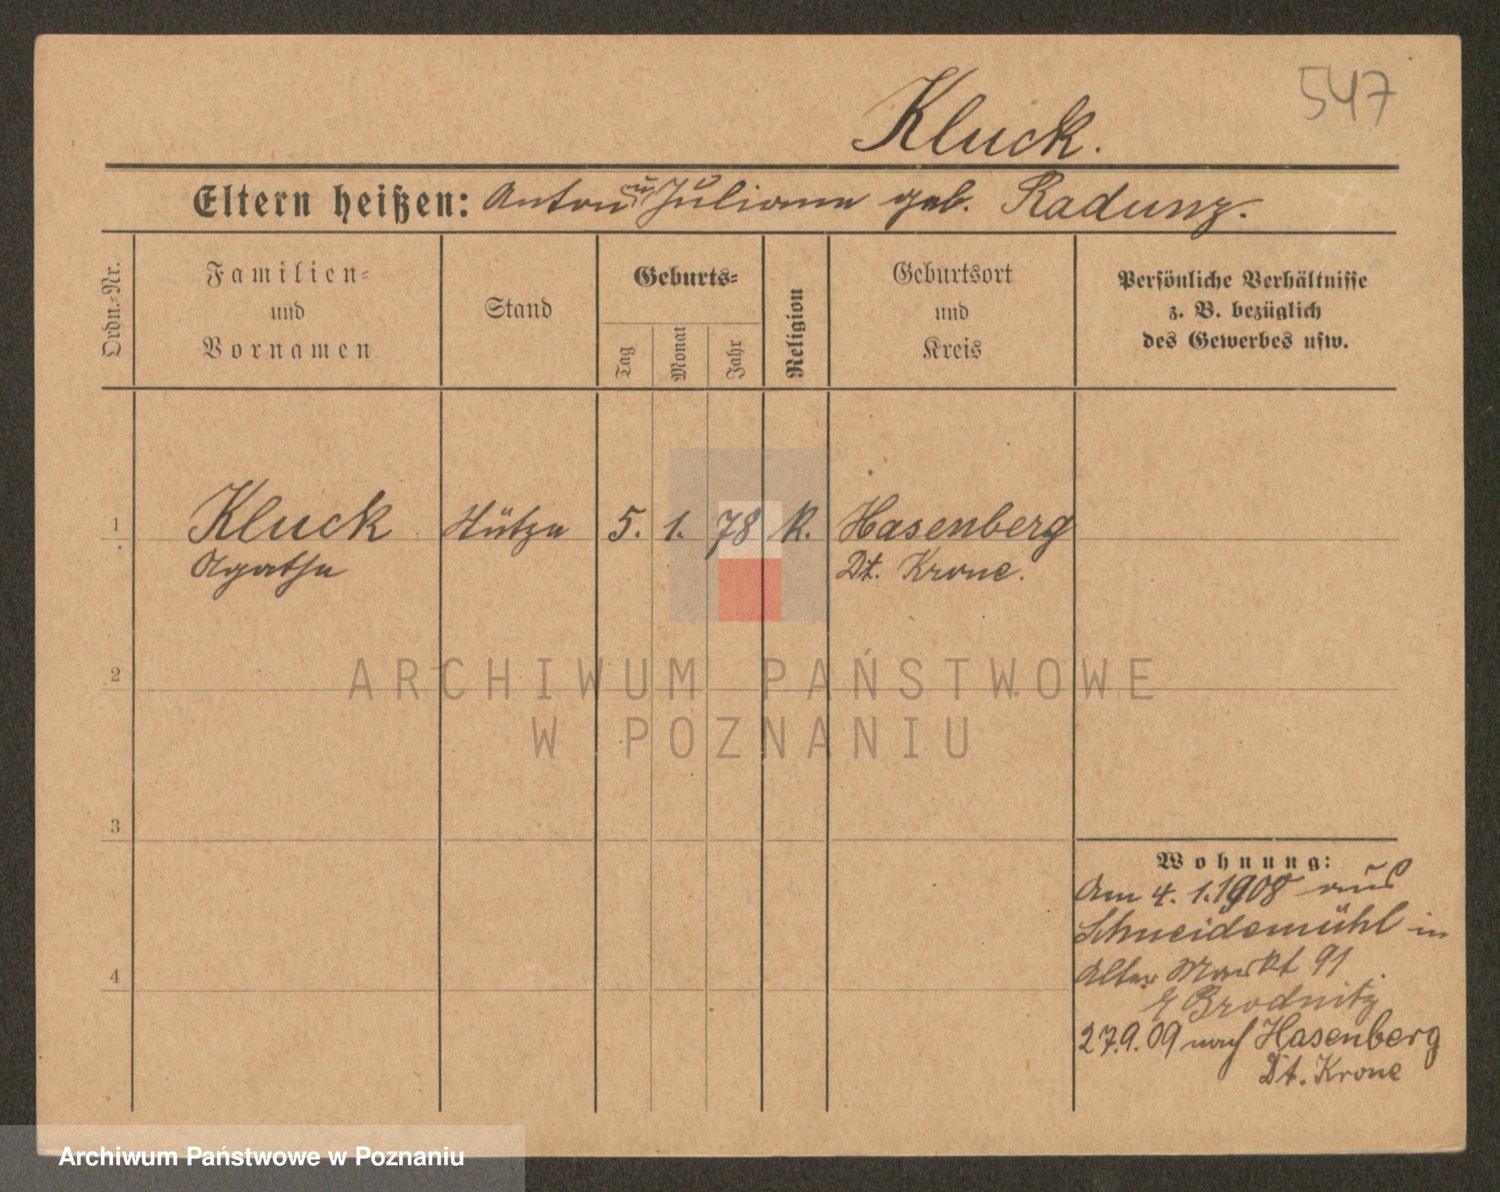 547
Kluck.
Eltern heißen: Anton u. Juliane geb. Radunz.
Ordn.-Nr.
Familien- und Vornamen
Stand
Geburts-
Tag
Monat
Jahr
Religion
Geburtsort und Kreis
Persönliche Verhältnisse
z. B. bezüglich
des Gewerbes usw.
1 Kluck Stütze 5. 1. 78 K. Hasenberg
Agathe Dt. Krone.
2
3
4
Wohnung:
Am 4. 1. 1908 aus
Schneidemühl in
Alter Markt 91
Brodnitz
27.9.09 nach Hasenberg
Dt. Krone
ARCHIWUM PAŃSTWOWE
W POZNANIU
Archiwum Państwowe w Poznaniu